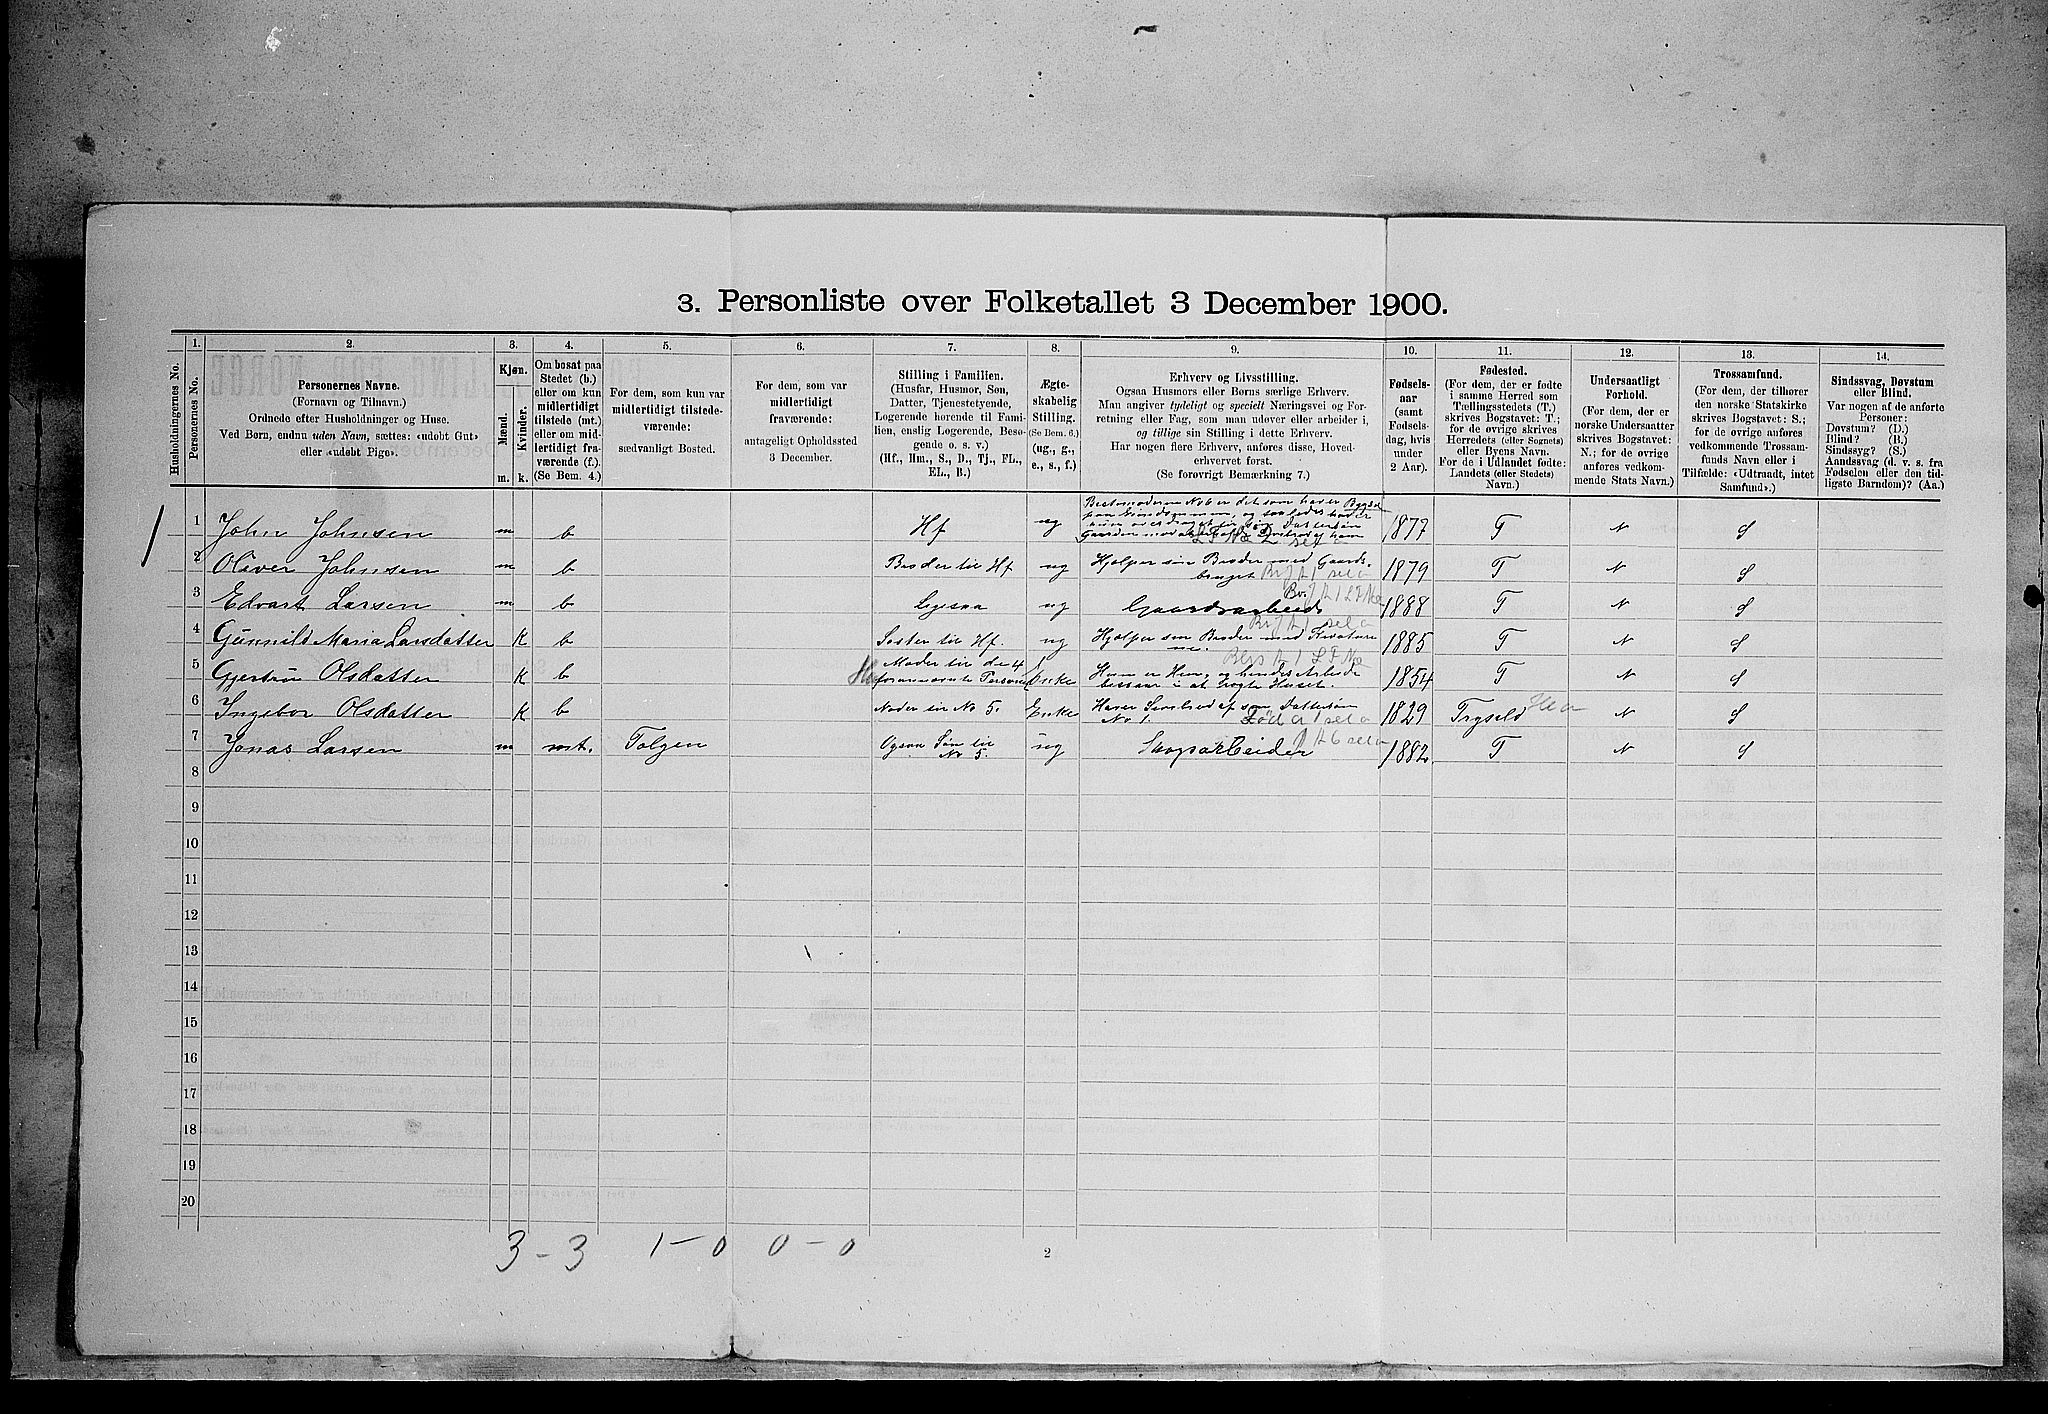 3. Personliste over Folketallet 3 December 1900.
Husholdningernes No.
1.
Personernes No.
2.
Personernes Navne.
(Fornavn og Tilnavn.)
Ordnede efter Husholdninger og Huse.
Ved Børn, endnu uden Navn, sættes: «udøbt Gut»
eller «udøbt Pige».
3.
Kjøn.
Mænd.
Kvinder.
m. k.
4.
Om bosat paa
Stedet (b.)
eller om kun
midlertidigt
tilstede (mt.)
eller om mid-
lertidigt fra-
værende (f.).
(Se Bem. 4.)
5.
For dem, som kun var
midlertidigt tilstede-
værende:
sædvanligt Bosted.
6.
For dem, som var
midlertidigt
fraværende:
antageligt Opholdssted
3 December.
7.
Stilling i Familien.
(Husfar, Husmor, Søn,
Datter, Tjenestetyende,
Logerende hørende til Fami-
lien, enslig Logerende, Besø-
gende o. s. v.)
(Hf., Hm., S., D., Tj., FL.,
EL., B.)
8.
Ægte-
skabelig
Stilling.
(Se Bem. 6.)
(ug., g.,
e., s., f.)
9.
Erhverv og Livsstilling.
Ogsaa Husmors eller Børns særlige Erhverv.
Man angiver tydeligt og specielt Næringsvei og For-
retning eller Fag, som man udøver eller arbeider i,
og tillige sin Stilling i dette Erhverv.
Har nogen flere Erhverv, anføres disse, Hoved-
erhvervet først.
(Se forøvrigt Bemærkning 7.)
10.
Fødsels-
aar
(samt
Fødsels-
dag, hvis
under
2 Aar).
11.
Fødested.
(For dem, der er fødte
i samme Herred som
Tællingsstedets (T.)
skrives Bogstavet: T.;
for de øvrige skrives
Herredets (eller Sognets)
eller Byens Navn.
For de i Udlandet fødte:
Landets (eller Stedets)
Navn.)
12.
Undersaatligt
Forhold.
(For dem, der er
norske Undersaatter
skrives Bogstavet:
N.; for de øvrige
anføres vedkom-
mende Stats Navn.)
13.
Trossamfund.
(For dem, der tilhører
den norske Statskirke
skrives Bogstavet: S.;
for de øvrige anføres
vedkommende Trossam-
funds Navn eller i
Tilfælde: «Udtraadt, intet
Samfund».)
14.
Sindssvag, Døvstum
eller Blind.
Var nogen af de anførte
Personer:
Døvstum? (D.)
Blind? (B.)
Sindssyg? (S.)
Aandssvag (d. v. s. fra
Fødselen eller den tid-
ligste Barndom)? (Aa.)
1 1 John Johnsen m b Hf ug 1877 T N S
2 Oliver Johnsen m b Broder til Hf ug Hjælper sin Broder med Gaards-
bruget 1879 T N S
3 Edvart Larsen m b Ligesaa ug Gaardsarbeide 1888 T N S
4 Gunnild Maria Larsdatter K b Søster til Hf. ug Hjælper sin Broder med Kreature
ne. 1885 T N S
5 Gjertrø Olsdatter K b Moder til de 4
forannævnte Personer Enke Hun er Hm, og hendes Arbeide
bestaar i at røgte Huset. 1854 T N S
6 Ingebor Olsdatter K b Moder til No 5. Enke Haver Levebrød af søn Dattersøn
No 1. 1829 Trysild N S
7 Jonas Larsen m mt. Tolgen Ogsaa Søn til
No 5. ug Saugarbeider 1882 T N S
8
9
10
11
12
13
14
15
16
17
18
19
20
3 - 3 1 - 0 0 - 0
2